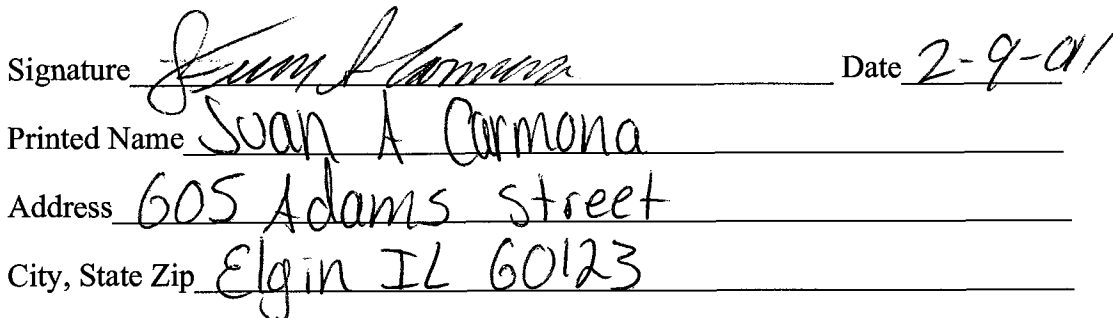 Signature Juan A Carmona Date 2-9-01
Printed Name Juan A Carmona
Address 605 Adams Street
City, State Zip Elgin IL 60123